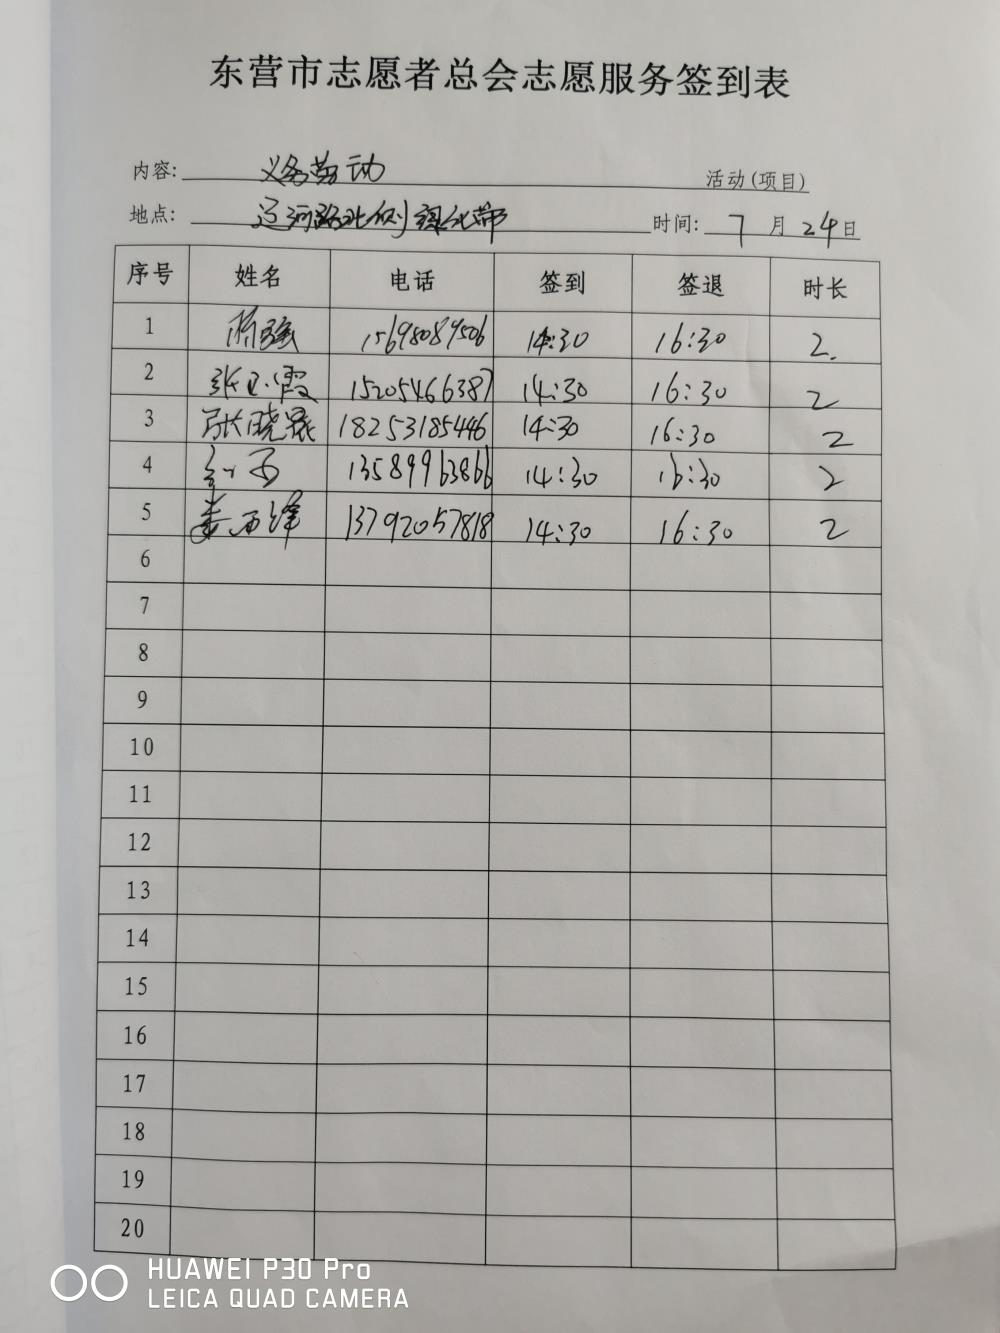 东营市志愿者总会志愿服务签到表
内容: 义务劳动 活动(项目)
地点: 运河路北侧绿化带 时间: 7月24日
序号 姓名 电话 签到 签退 时长
1 15695089506 14:30 16:30 2.
2 张玉霞 15205466387 14:30 16:30 2
3 张晓晨 18253185446 14:30 16:30 2
4 13589963866 14:30 16:30 2
5 13792057818 14:30 16:30 2
6
7
8
9
10
11
12
13
14
15
16
17
18
19
20
HUAWEI P30 Pro
LEICA QUAD CAMERA